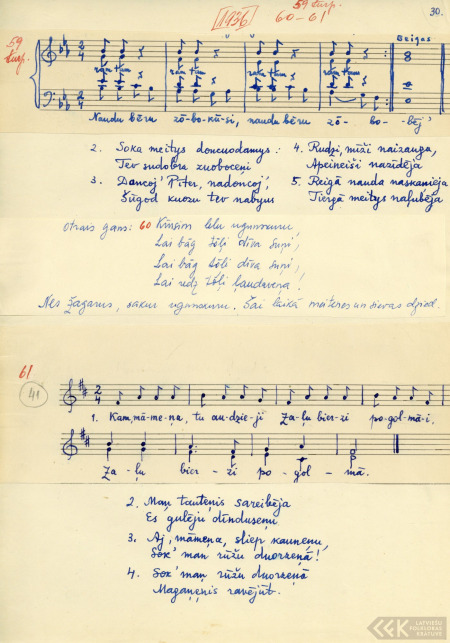 [1936]
59 turp.
60-61
30.
59 turp.
Beigas
ram tam ram tam ram tam ram tam
Naudu bēru zō-bo-kū-si, naudu bēru zō-bo-bēj'
2. Soka meitys doncuodamys:
Tev sudobra zuoboceņi
3. Dancoj' Pīter, nadoncoj',
Šūgod kuozu tev nabyus
4. Rudzi, mīži naizauga,
Apeineiši nazīdēja
5. Reigā nauda naskanēja
Tiergā meitys nagubēja
otrais gans: 60 Kīnsim lelu ugunkuru,
Lai bāg tōli dīva suņi,
Lai bāg tōli dīva suņi,
Lai redz tōli ļaudaveņa!
Nes žagarus, sakur ugunkuru. Šai laikā meitenes un sievas dzied.
61
41
1. Kam, mā-me-ņa, tu au-dzie-ji za-ļu bier-zi po-gol-mā-i.
Za-ļu bier-zi po-gol-mā.
2. Maņ tauteņis sareibēja
Es gulēju dīnduseņu
3. Aj, māmeņa, sliep kauneņu,
Sok' maņ rūžu duorzeņā!
4. Sok' maņ rūžu duorzeņā
Magaņenis ravējūt.
LATVIEŠU
FOLKLORAS
KRĀTUVE